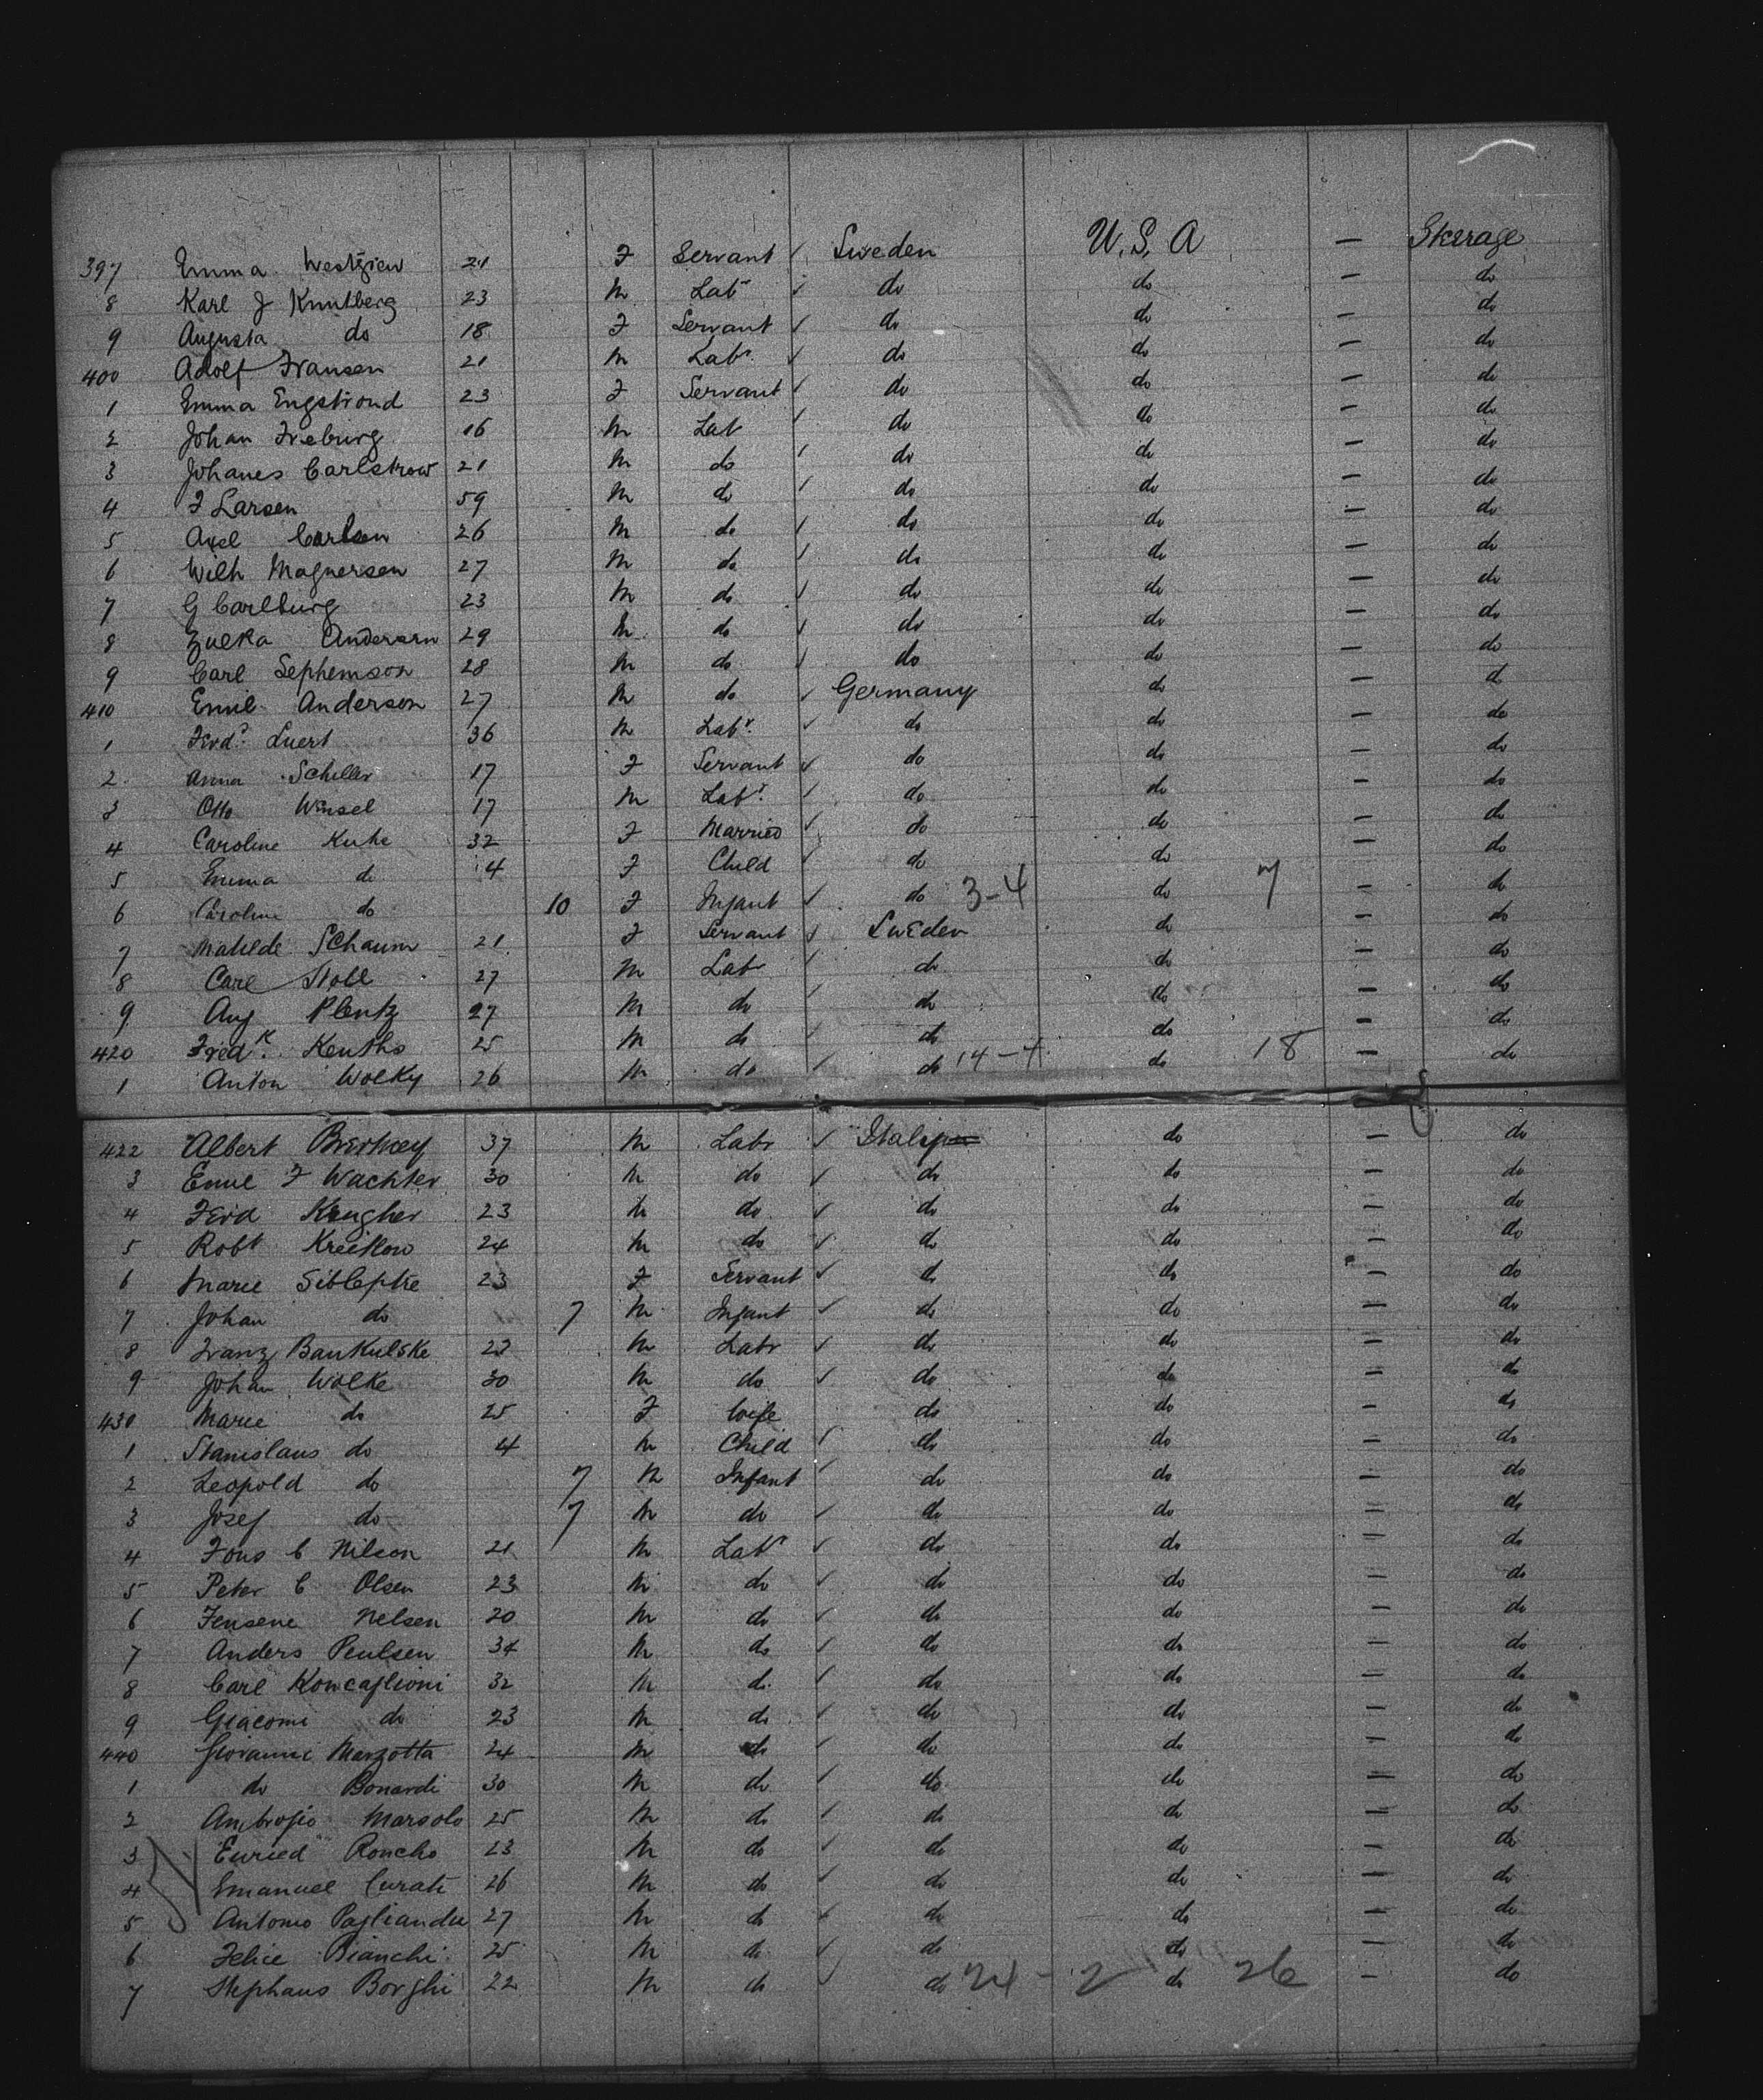 397 Emma Westgien 21 F Servant ✓ Sweden U.S.A — Sterage
8 Karl J Knutberg 23 M Labr ✓ do do — do
9 Augusta do 18 F Servant ✓ do do — do
400 Adolf Fransen 21 M Labr ✓ do do — do
1 Emma Engstrond 23 F Servant ✓ do do — do
2 Johan Freburg 16 M Lab ✓ do do — do
3 Johanes Carlstrow 21 M do ✓ do do — do
4 F Larsen 59 M do ✓ do do — do
5 Axel Carlsen 26 M do ✓ do do — do
6 Wilh Magnersen 27 M do ✓ do do — do
7 G Carlburg 23 M do ✓ do do — do
8 Andersen 29 M do ✓ do do — do
9 Carl Sephemson 28 M do ✓ do do — do
410 Emil Anderson 27 M do ✓ Germany do — do
1 Ferd. Luert 36 M Labr. ✓ do do — do
2 Anna Schiller 17 F Servant ✓ do do — do
3 Otto Winsel 17 M Labr. ✓ do do — do
4 Caroline Kuhe 32 F Married ✓ do do — do
5 Emma do 4 F Child ✓ do do — do
6 Caroline do 10 F Infant ✓ do 3-4 do 7 — do
7 Matilde Schaum 21 F Servant ✓ Sweden do — do
8 Carl Stoll 27 M Labr ✓ do do — do
9 Aug Plentz 27 M do ✓ do do — do
420 Fredk. Kentho 25 M do ✓ do do — do
1 Anton Wolky 26 M do ✓ do 14-4 do 18 — do
422 Albert 37 M Labr ✓ Italy do — do
3 Emil F Wachter 30 M do ✓ do do — do
4 Ferd Krugher 23 M do ✓ do do — do
5 Robt Kreitlow 24 M do ✓ do do — do
6 Marie Siblepke 23 F Servant ✓ do do — do
7 Johan do 7 M Infant ✓ do do — do
8 Franz Bankulske 23 M Labr ✓ do do — do
9 Johan Wolke 30 M do ✓ do do — do
430 Marie do 25 F Wife do do — do
1 Stanislaus do 4 M Child ✓ do do — do
2 Leopold do 7 M Infant ✓ do do — do
3 Josef do 7 M do ✓ do do — do
4 Fons C Nilson 21 M Labr ✓ do do — do
5 Peter C Olsen 23 M do ✓ do do — do
6 Jensene Nelsen 20 M do ✓ do do — do
7 Anders Peulsen 34 M do ✓ do do — do
8 Carl Koncaglioni 32 M do ✓ do do — do
9 Giacomi do 23 M do ✓ do do — do
440 Giovanni Marzotta 24 M do ✓ do do — do
1 do Bonardi 30 M do ✓ do do — do
2 Ambrosio Marsolo 25 M do ✓ do do — do
3 Euried Roncho 23 M do ✓ do do — do
4 Emanuel Curati 26 M do ✓ do do — do
5 Antonio Pagliandu 27 M do ✓ do do — do
6 Felice Bianchi 25 M do ✓ do do — do
7 Stephaus Borghi 22 M do ✓ do 24-2 do 26 — do